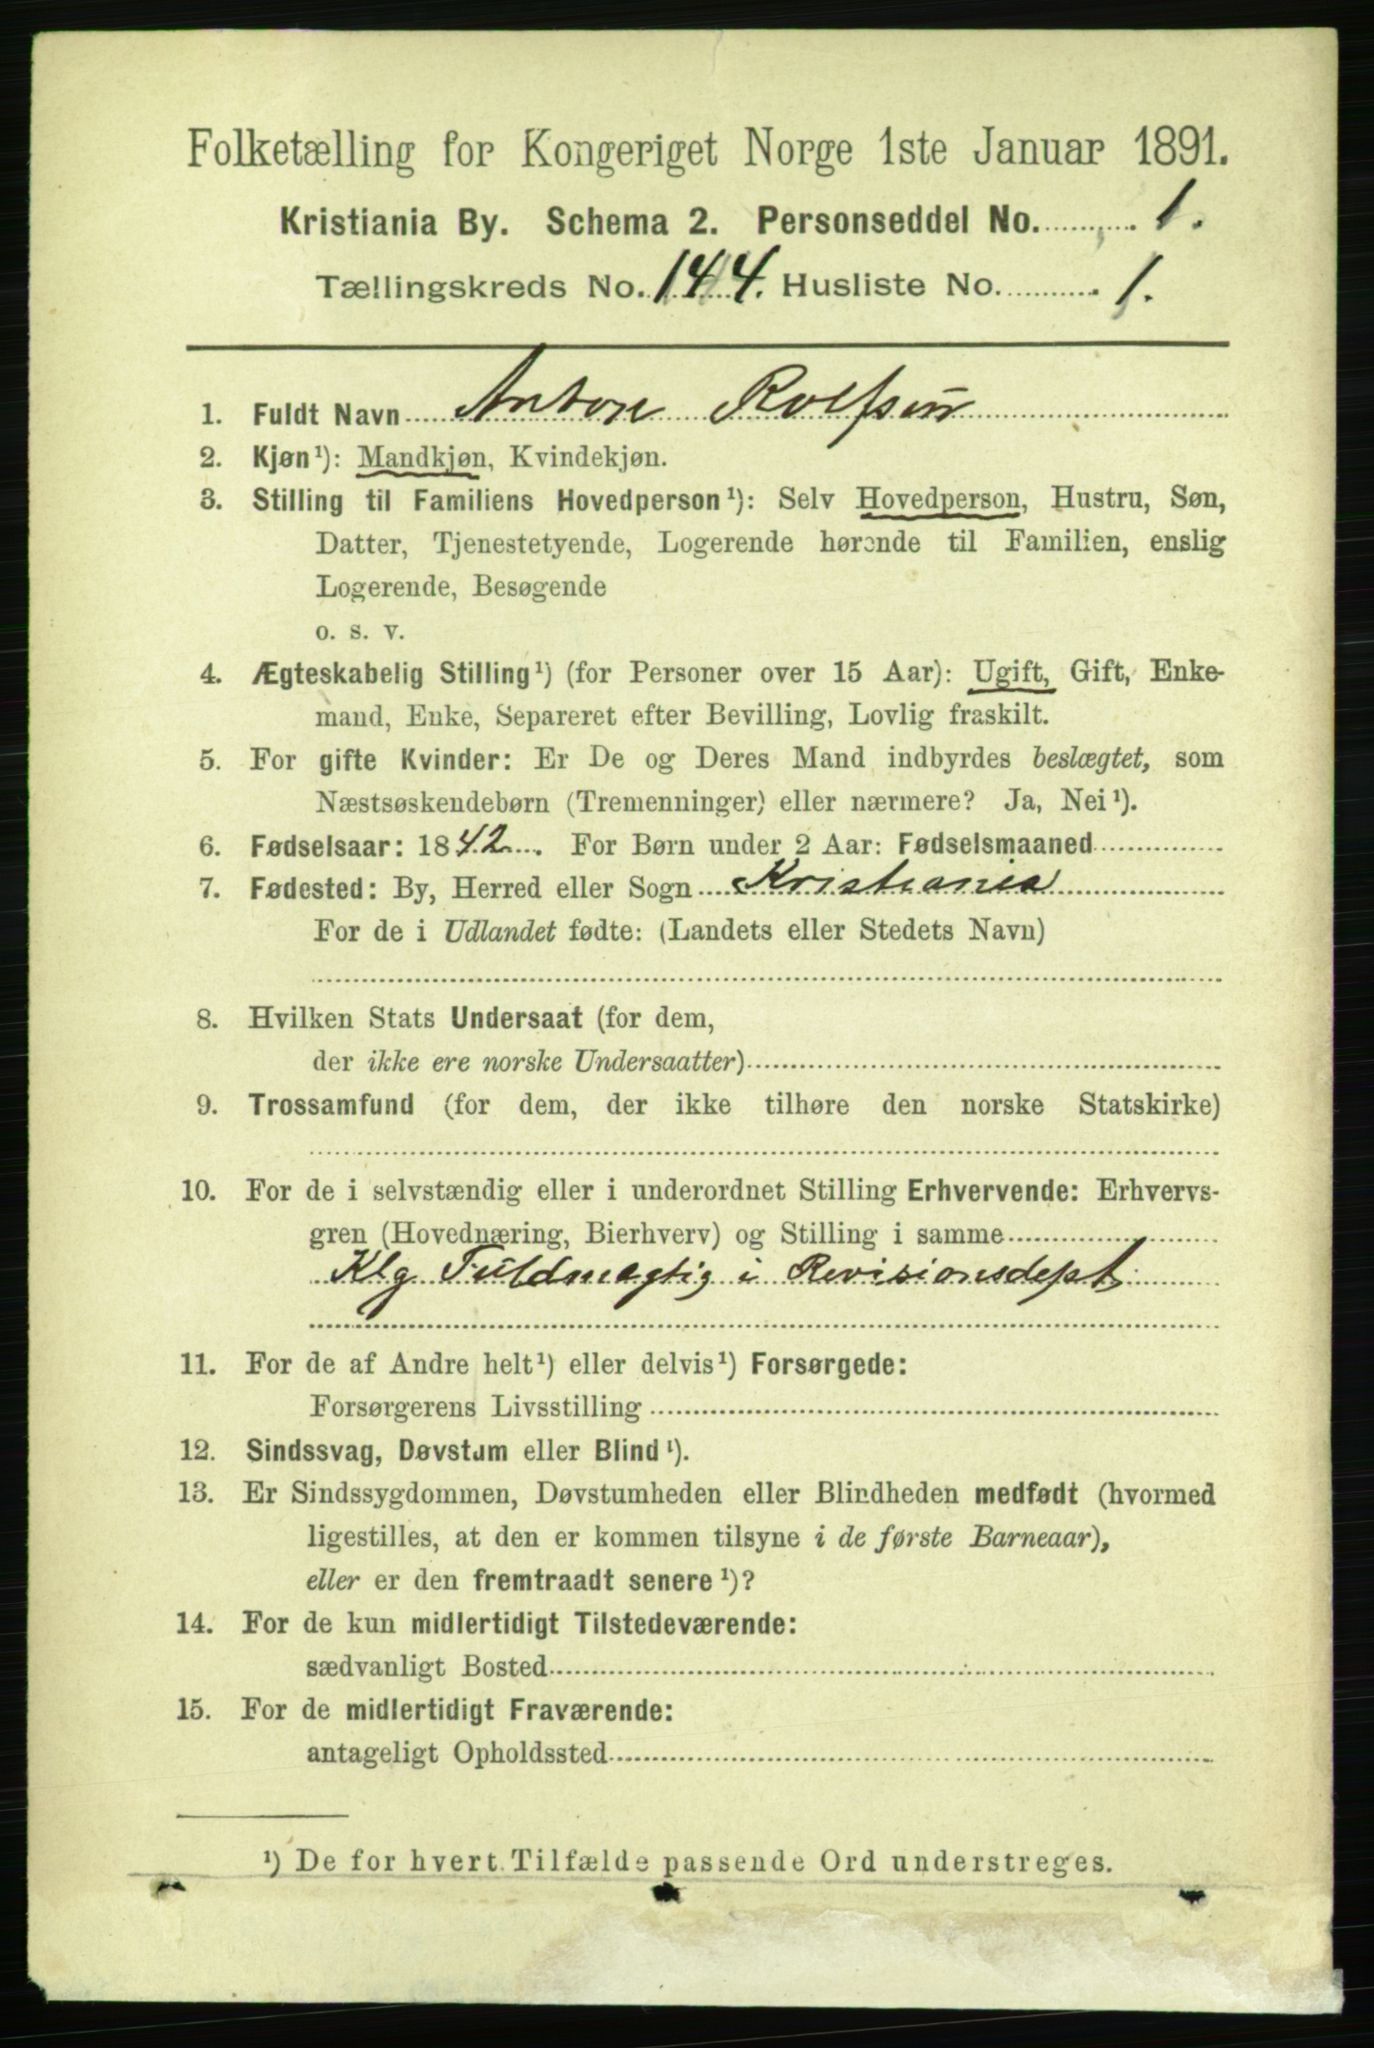 Folketælling for Kongeriget Norge 1ste Januar 1891.
Kristiania By. Schema 2. Personseddel No. 1.
Tællingskreds No. 144. Husliste No. 1.
1. Fuldt Navn Anton Rolfsen
2. Kjøn¹): Mandkjøn, Kvindekjøn.
3. Stilling til Familiens Hovedperson¹): Selv Hovedperson, Hustru, Søn,
Datter, Tjenestetyende, Logerende hørende til Familien, enslig
Logerende, Besøgende
o. s. v.
4. Ægteskabelig Stilling¹) (for Personer over 15 Aar): Ugift, Gift, Enke-
mand, Enke, Separeret efter Bevilling, Lovlig fraskilt.
5. For gifte Kvinder: Er De og Deres Mand indbyrdes beslægtet, som
Næstsøskendebørn (Tremenninger) eller nærmere? Ja, Nei¹).
6. Fødselsaar: 1842. For Børn under 2 Aar: Fødselsmaaned
7. Fødested: By, Herred eller Sogn Kristiania
For de i Udlandet fødte: (Landets eller Stedets Navn)
8. Hvilken Stats Undersaat (for dem,
der ikke ere norske Undersaatter)
9. Trossamfund (for dem, der ikke tilhøre den norske Statskirke)
10. For de i selvstændig eller i underordnet Stilling Erhvervende: Erhvervs-
gren (Hovednæring, Bierhverv) og Stilling i samme
Klg Fuldmægtig i Revisionsdept
11. For de af Andre helt¹) eller delvis¹) Forsørgede:
Forsørgerens Livsstilling
12. Sindssvag, Døvstum eller Blind¹).
13. Er Sindssygdommen, Døvstumheden eller Blindheden medfødt (hvormed
ligestilles, at den er kommen tilsyne i de første Barneaar),
eller er den fremtraadt senere¹)?
14. For de kun midlertidigt Tilstedeværende:
sædvanligt Bosted
15. For de midlertidigt Fraværende:
antageligt Opholdssted
¹) De for hvert Tilfælde passende Ord understreges.